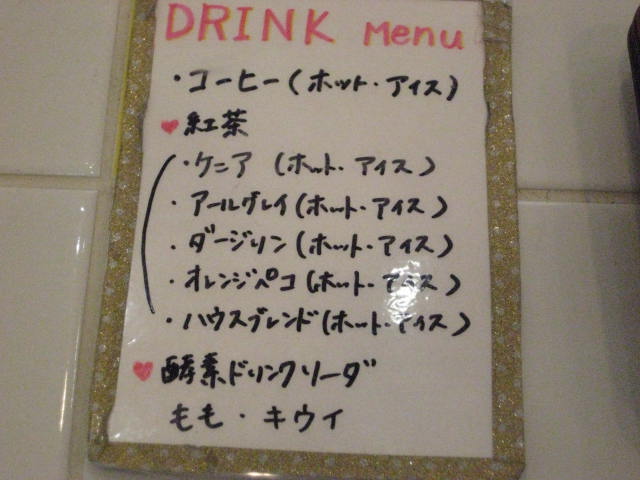 DRINK Menu
・コーヒー(ホット・アイス)
♥紅茶
・ケニア (ホット・アイス)
・アールグレイ(ホット・アイス)
・ダージリン(ホット・アイス)
・オレンジペコ(ホット・アイス)
・ハウスブレンド(ホット・アイス)
♥酵素ドリンクソーダ
もも・キウイ